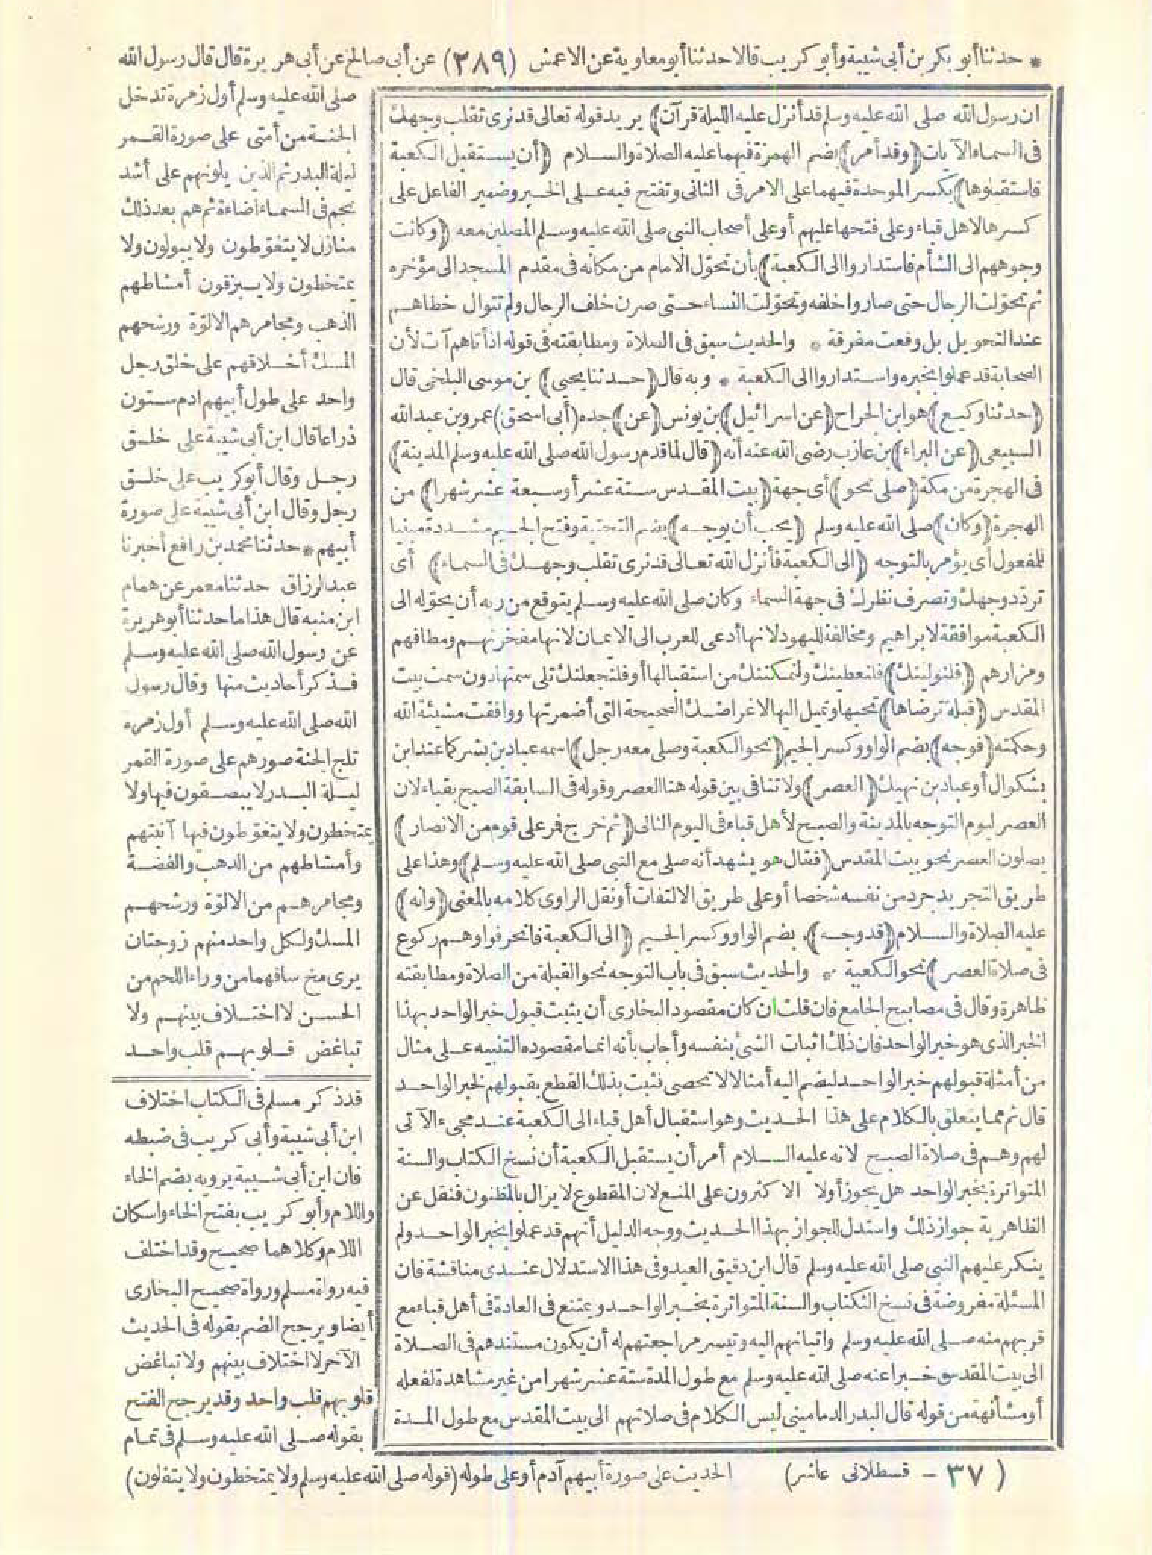 * حدثنا أبو بكر بن أبي شيبة وأبو كريب قالا حدثنا أبو معاوية عن الاعمش (٢٨٩) عن أبي صالح عن أبي هريرة قال قال رسول الله
صلى الله عليه وسلم أول زمرة تدخل
الجنة من أمتى على صورة القمر
ليلة البدر ثم الذين يلونهم على أشد
نجم فى السماء اضاءة ثم هم بعد ذلك
منازل لا يتغوّطون ولا يبولون ولا
يمتخطون ولا يبزقون أمشاطهم
الذهب ومجامرهم الالوّة ورشحهم
المسك أخلاقهم على خلق رجل
واحد على طول أبيهم آدم ستون
ذراعا قال ابن أبى شيبة على خلق
رجل وقال أبو كريب على خلق
رجل وقال ابن أبى شيبة على صورة
أبيهم * حدثنا محمد بن رافع أخبرنا
عبد الرزاق حدثنا معمر عن همام
ابن منبه قال هذا ما حدثنا أبو هريرة
عن رسول الله صلى الله عليه وسلم
فذكر أحاديث منها وقال رسول
الله صلى الله عليه وسلم أول زمرة
تلج الجنة صورهم على صورة القمر
ليلة البدر لا يبصقون فيها ولا
يمتخطون ولا يتغوّطون فيها آنيتهم
وأمشاطهم من الذهب والفضة
ومجامرهم من الالوّة ورشحهم
المسك ولكل واحد منهم زوجتان
يرى مخ ساقهما من وراء اللحم من
الحسن لا اختلاف بينهم ولا
تباغض قلوبهم قلب واحد
قد ذكر مسلم فى الكتاب اختلاف
ابن أبى شيبة وأبى كريب فى ضبطه
فان ابن أبى شيبة يرويه بضم الخاء
واللام وأبو كريب بفتح الخاء واسكان
اللام وكلاهما صحيح وقد اختلف
فيه رواة مسلم ورواة صحيح البخارى
أيضا ويرجح الضم بقوله فى الحديث
الآخر لا اختلاف بينهم ولا تباغض
قلوبهم قلب واحد وقد يرجح الفتح
بقوله صلى الله عليه وسلم فى تمام
ان رسول الله صلى الله عليه وسلم قد أنزل عليه الليلة قرآن) يريد قوله تعالى قد نرى تقلب وجهك
فى السماء الآيات (وقد أمر) بضم الهمزة فيهما عليه الصلاة والسلام (أن يستقبل الكعبة
فاستقبلوها) بكسر الموحدة فيهما على الامر فى الثانى وتفتح فيه على الخبر وضمير الفاعل على
كسرها لاهل قباء وعلى فتحها عليهم أو على أصحاب النبى صلى الله عليه وسلم المصلين معه (وكانت
وجوههم الى الشأم فاستداروا الى الكعبة) بأن تحوّل الامام من مكانه فى مقدم المسجد الى مؤخره
ثم تحوّلت الرجال حتى صاروا خلفه وتحوّلت النساء حتى صرن خلف الرجال ولم تتوال خطاهم
عند التحويل بل وقعت مفرقة * والحديث سبق فى الصلاة ومطابقته فى قوله اذ أتاهم آت لأن
الصحابة قد عملوا بخبره واستداروا الى الكعبة * وبه قال (حدثنا يحيى) بن موسى البلخى قال
(حدثنا وكيع) هو ابن الجراح (عن اسرائيل) بن يونس (عن) جده (أبى اسحق) عمرو بن عبد الله
السبيعى (عن البراء) بن عازب رضى الله عنه أنه (قال لما قدم رسول الله صلى الله عليه وسلم المدينة)
فى الهجرة من مكة (صلى نحو) أى جهة (بيت المقدس ستة عشر أو سبعة عشر شهرا) من
الهجرة (وكان) صلى الله عليه وسلم (يحب أن يوجه) بضم التحتية وفتح الجيم مشددة مبنيا
للمفعول أى يؤمر بالتوجه (الى الكعبة فأنزل الله تعالى قد نرى تقلب وجهك فى السماء) أى
تردّد وجهك وتصرف نظرك فى جهة السماء وكان صلى الله عليه وسلم يتوقع من ربه أن يحوّله الى
الكعبة موافقة لابراهيم ومخالفة لليهود لانها أدعى للعرب الى الايمان لانها مفخرتهم ومطافهم
ومزارهم (فلنولينك) فلنعطينك ولنمكننك من استقبالها أو فلنجعلنك تلى سمتها دون سمت بيت
المقدس (قبلة ترضاها) تحبها وتميل اليها لاغراضك الصحيحة التى أضمرتها ووافقت مشيئة الله
وحكمته (فوجه) بضم الواو وكسر الجيم (نحو الكعبة وصلى معه رجل) اسمه عباد بن بشر كما عند ابن
بشكوال أو عباد بن نهيك (العصر) ولا تنافى بين قوله هنا العصر وقوله فى السابقة الصبح بقباء لان
العصر ليوم التوجه بالمدينة والصبح لأهل قباء فى اليوم الثانى (ثم خرج فمر على قوم من الانصار)
يصلون العصر نحو بيت المقدس (فقال هو يشهد أنه صلى مع النبى صلى الله عليه وسلم) وهذا على
طريق التجريد جرد من نفسه شخصا أو على طريق الالتفات أو نقل الراوى كلامه بالمعنى (وانه)
عليه الصلاة والسلام (قد وجه)، بضم الواو وكسر الجيم (الى الكعبة فانحرفوا وهم ركوع
فى صلاة العصر) نحو الكعبة * والحديث سبق فى باب التوجه نحو القبلة من الصلاة ومطابقته
ظاهرة وقال فى مصابيح الجامع فان قلت ان كان مقصود البخارى أن يثبت قبول خبر الواحد بهذا
الخبر الذى هو خبر الواحد فان ذلك اثبات الشئ بنفسه وأجاب بأنه انما مقصوده التنبيه على مثال
من أمثلة قبولهم خبر الواحد ليضم اليه أمثالا لا تحصى تثبت بذلك القطع بقبولهم لخبر الواحد
قال ثم مما يتعلق بالكلام على هذا الحديث وهو استقبال أهل قباء الى الكعبة عند مجىء الآتى
لهم وهم فى صلاة الصبح لانه عليه السلام أمر أن يستقبل الكعبة أن نسخ الكتاب والسنة
المتواترة بخبر الواحد هل يجوز أولا الاكثرون على المنع لان المقطوع لا يزال بالمظنون فنقل عن
الظاهرية جواز ذلك واستدل للجواز بهذا الحديث ووجه الدليل أنهم قد عملوا بخبر الواحد ولم
ينكر عليهم النبى صلى الله عليه وسلم قال ابن دقيق العيد وفى هذا الاستدلال عندى مناقشة فان
المسئلة مفروضة فى نسخ الكتاب والسنة المتواترة بخبر الواحد ويمتنع فى العادة فى أهل قباء مع
قربهم منه صلى الله عليه وسلم واتيانهم اليه وتيسر مراجعتهم له أن يكون مستندهم فى الصلاة
الى بيت المقدس خبرا عنه صلى الله عليه وسلم مع طول المدة ستة عشر شهرا من غير مشاهدة لفعله
أو مشافهة من قوله قال البدر الدمامينى ليس الكلام فى صلاتهم الى بيت المقدس مع طول المدة
(٣٧ - قسطلانى عاشر) الحديث على صورة أبيهم آدم أو على طوله (قوله صلى الله عليه وسلم ولا يمتخطون ولا يتفلون)